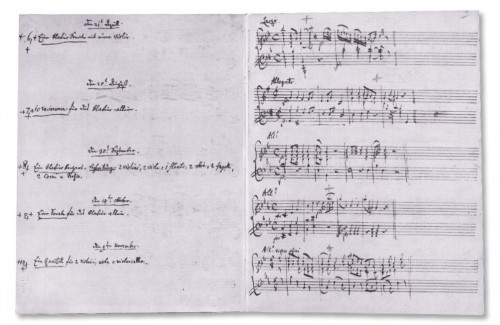 den 21t April
Eine Klavier Sonate mit einer Violin
den 25t August.
10 Variazionen für das Klavier allein.
den 30t September.
Ein Klavier Konzert. 2 violini, 2 viole, 1 flauto, 2 oboe, 2 fagotti,
2 Corni e Basso.
den 14t Oktober.
Eine Sonate für das Klavier allein.
den 9t November.
Ein Quartett für 2 violin, viola e violoncello.
Largo
Allegretto
All:
All:
All: vivace assai